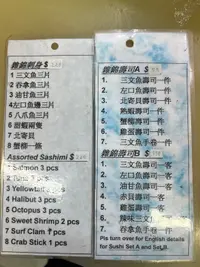 雜錦刺身 $
1 三文魚三片
2 吞拿魚三片
3 油甘魚三片
4 左口魚邊三片
5 八爪魚三片
6 甜蝦兩隻
7 北寄貝
8 蟹柳一條
Assorted Sashimi $
1 Salmon 3 pcs
2 Tuna 3 pcs
3 Yellowtail 3 pcs
4 Halibut 3 pcs
5 Octopus 3 pcs
6 Sweet Shrimp 2 pcs
7 Surf Clam 1 pcs
8 Crab Stick 1 pcs
雜錦壽司A $
1. 三文魚壽司一件
2. 左口魚壽司一件
3. 北寄貝壽司一件
4. 熟蝦壽司一件
5. 蟹柳壽司一件
6. 雞蛋壽司一件
7. 吞拿魚壽司一件
雜錦壽司B $
1. 三文魚壽司一客
2. 左口魚壽司一客
3. 油甘魚壽司一客
4. 赤貝壽司一客
5. 雞蛋壽司一客
6. 辣味三文
7. 魚子手卷一件
Pls turn over for English details
for Sushi Set A and Set B.